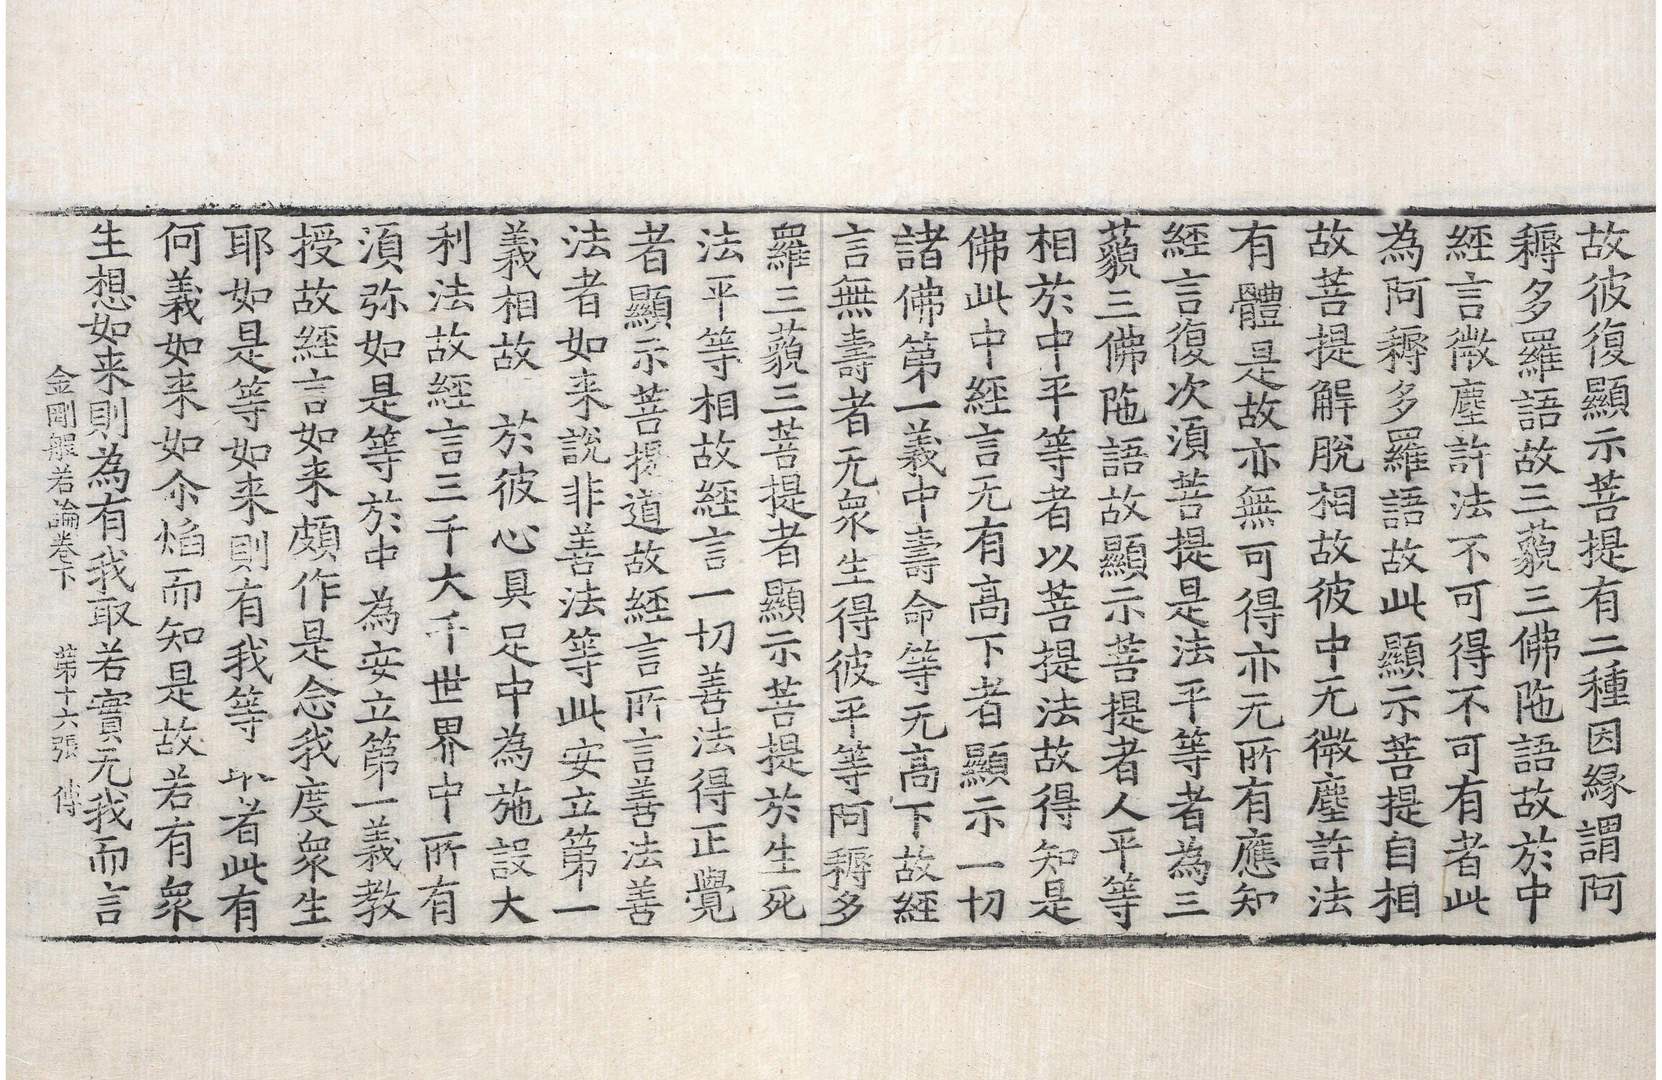 故彼復顯示菩提有二種因緣謂阿
耨多羅語故三藐三佛陁語故於中
經言微塵許法不可得不可有者此
為阿耨多羅語故此顯示菩提自相
故菩提解脫相故彼中无微塵許法
有體是故亦無可得亦无所有應知
經言復次湏菩提是法平等者為三
藐三佛陁語故顯示菩提者人平等
相於中平等者以菩提法故得知是
佛此中經言无有高下者顯示一切
諸佛第一義中壽命等无高下故經
言無壽者无衆生得彼平等阿耨多
羅三藐三菩提者顯示菩提於生死
法平等相故經言一切善法得正覺
者顯示菩提道故經言所言善法善
法者如来說非善法等此安立第一
義相故 於彼心具足中為施設大
利法故經言三千大千世界中所有
湏弥如是等於中為安立第一義教
授故經言如来頗作是念我度衆生
耶如是等如来則有我等取者此有
何義如来如尒焰而知是故若有衆
生想如来則為有我取若實无我而言
金剛般若論卷下 苐十六張 傅